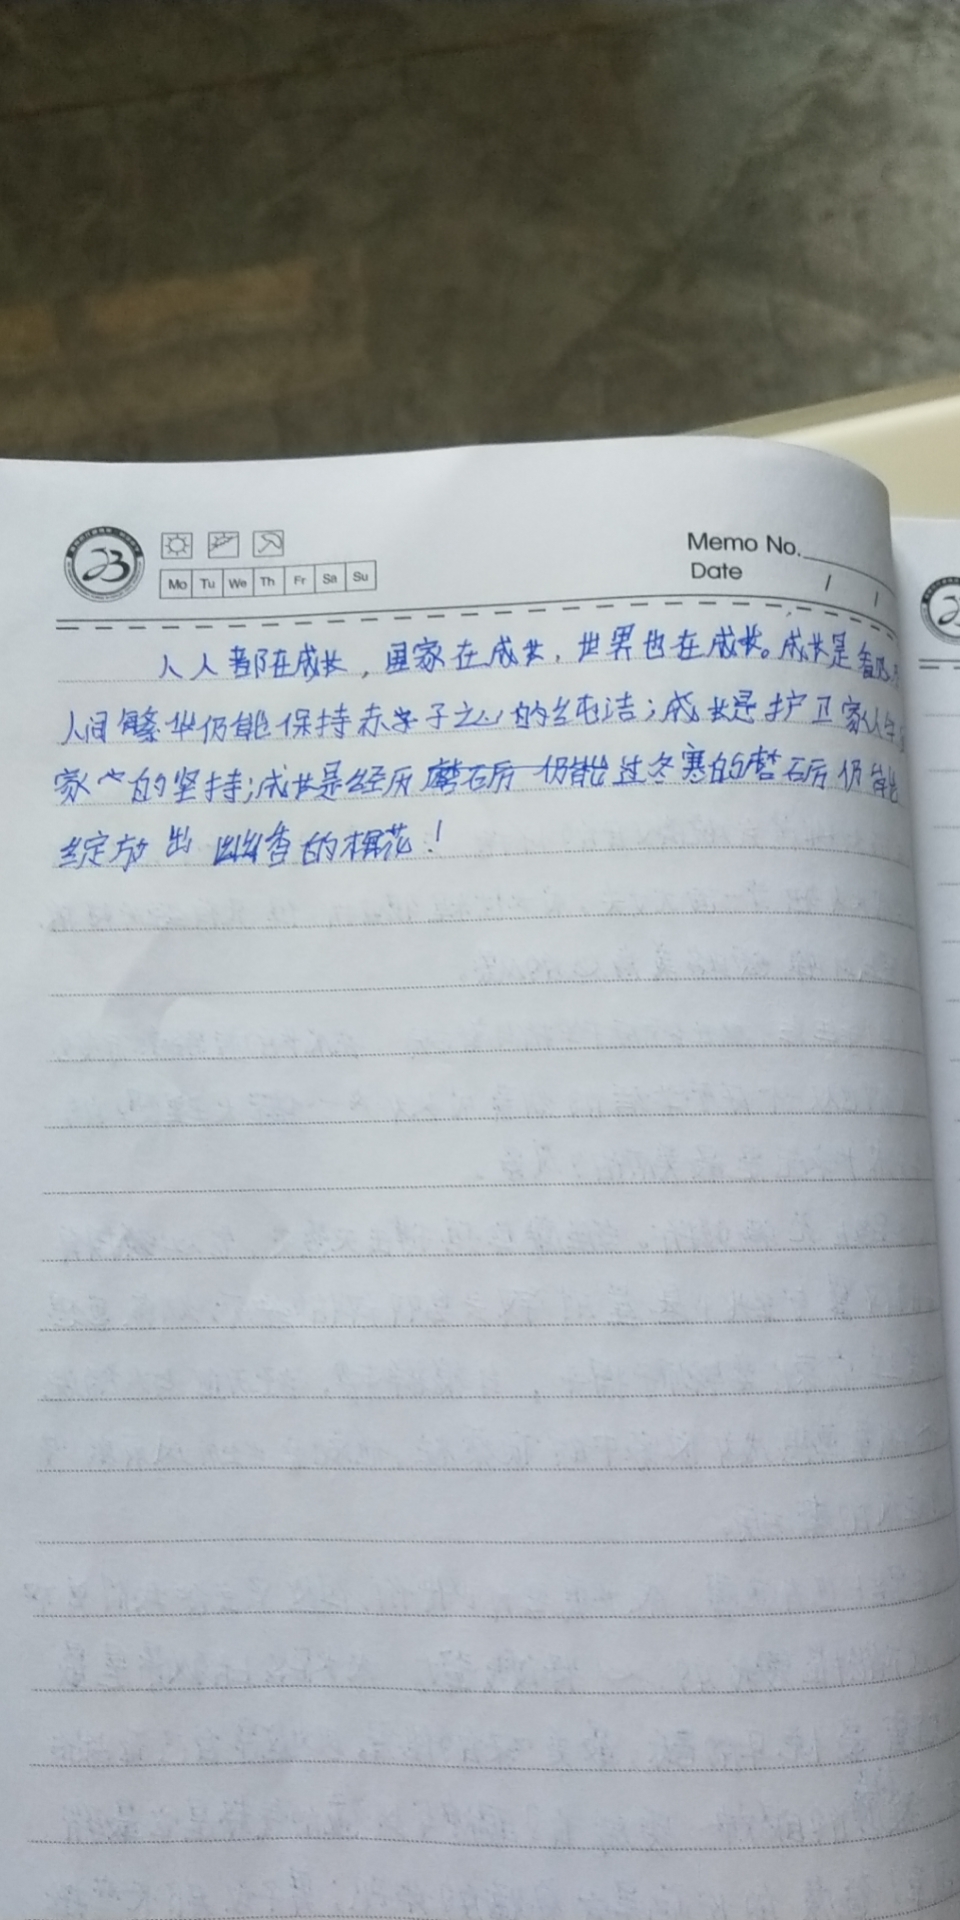 Memo No.
Date / /
Mo Tu We Th Fr Sa Su
人人都在成长，国家在成长，世界也在成长。成长是看
人间繁华仍能保持赤子之心的纯洁；成长是护卫家人
家的坚持；成长是经历磨砺仍能过冬寒的磨砺仍能
绽放出幽香的梅花！